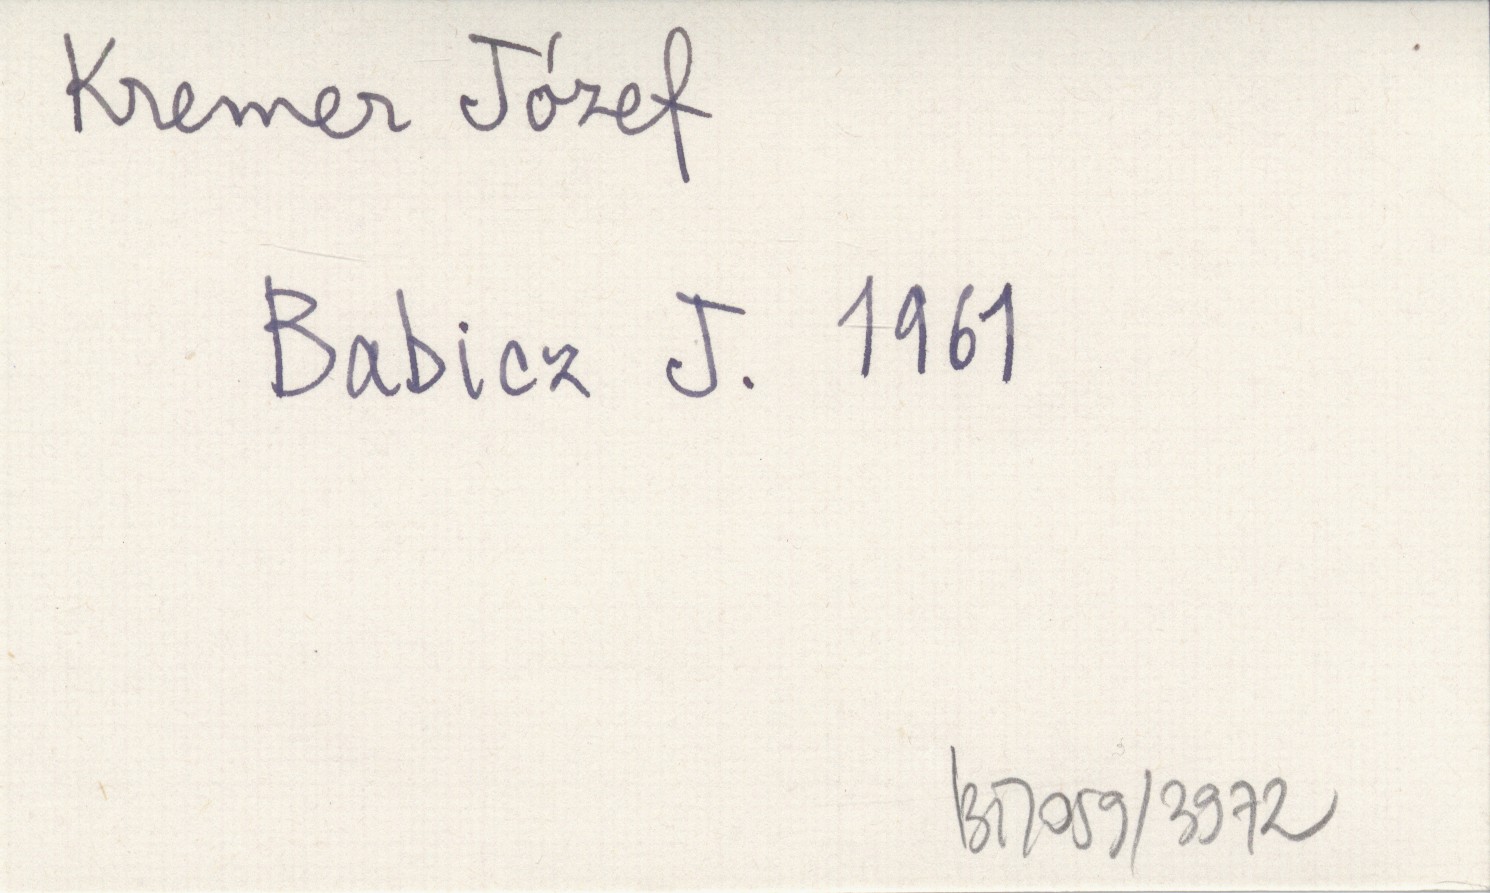 Kremer Józef
Babicz J. 1961
/3972